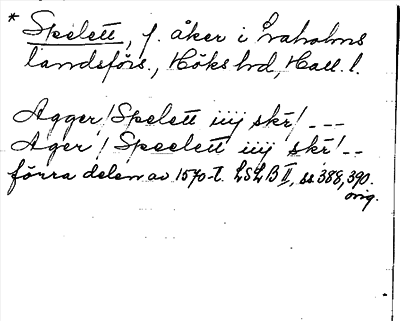 * Spelett, f. åker i Eraholms
landsförs., Höks hd, Hall. l.
Agger / Spelett iiij skr / ---
Ager / Speelett iiij skr / --
förra delen av 1570-t. LSLB II, ss 388, 390.
orig.